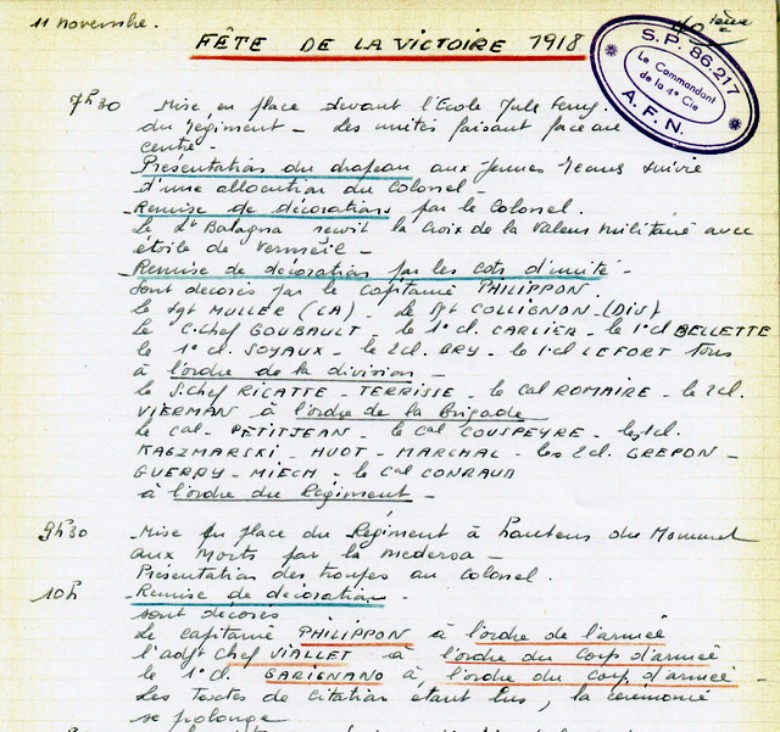 11 novembre.
40 ième
FÊTE DE LA VICTOIRE 1918
S.P. 86.217
Le Commandant
de la 4e Cie
A.F.N.
7h30 Mise en place devant l'Ecole Jule Ferry.
du régiment - Les unités faisant face au
centre -
Présentation du drapeau aux Jeunes recrues suivie
d'une allocution du Colonel -
- Remise de décorations par le Colonel.
Le Lt Balagna reçoit la Croix de la Valeur Militaire avec
étoile de Vermeil -
- Remise de décoration par les cdts d'unité -
Sont décorés par le capitaine PHILIPPON.
le sgt MULLER (CA) - Le sgt COLLIGNON - (DIV)
Le C.Chef GOUBAULT - le 1° cl. CARLIER - le 1°cl BELLETTE
le 1° cl. SOYAUX - le 2cl. BRY - le 1°cl LEFORT tous
à l'ordre de la division -
le S.Chef RICATTE - TERRISSE - le cal ROMAIRE - le 2cl.
VIERMAN à l'ordre de la Brigade
Le cal - PETITJEAN - le cal COUSPEYRE - les 1cl.
KACZMARSKI - HUOT - MARCHAL - les 2cl. GREPON -
GUERRY - MIECH - le cal CONRAUD
à l'ordre du Régiment -
9h30 - Mise en place du Régiment à hauteur du Monument
aux Morts par la medersa -
Présentation des troupes au Colonel.
10h - Remise de décoration -
sont décorés
Le capitaine PHILIPPON à l'ordre de l'armée
l'adjt Chef VIALLET à l'ordre du corps d'armée
le 1° cl. GARIGNANO à, l'ordre du corp d'armée -
Les Textes de Citation étant lus, la cérémonie
se prolonge